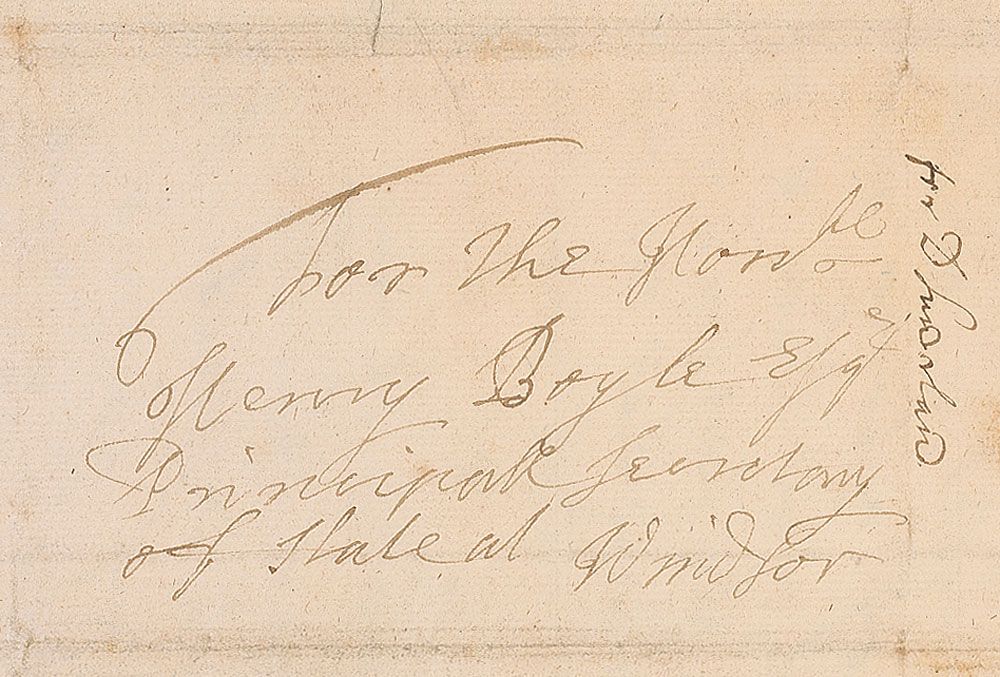 For The Honble
Henry Boyle Esqr
Principall Secretary
of State at Windsor